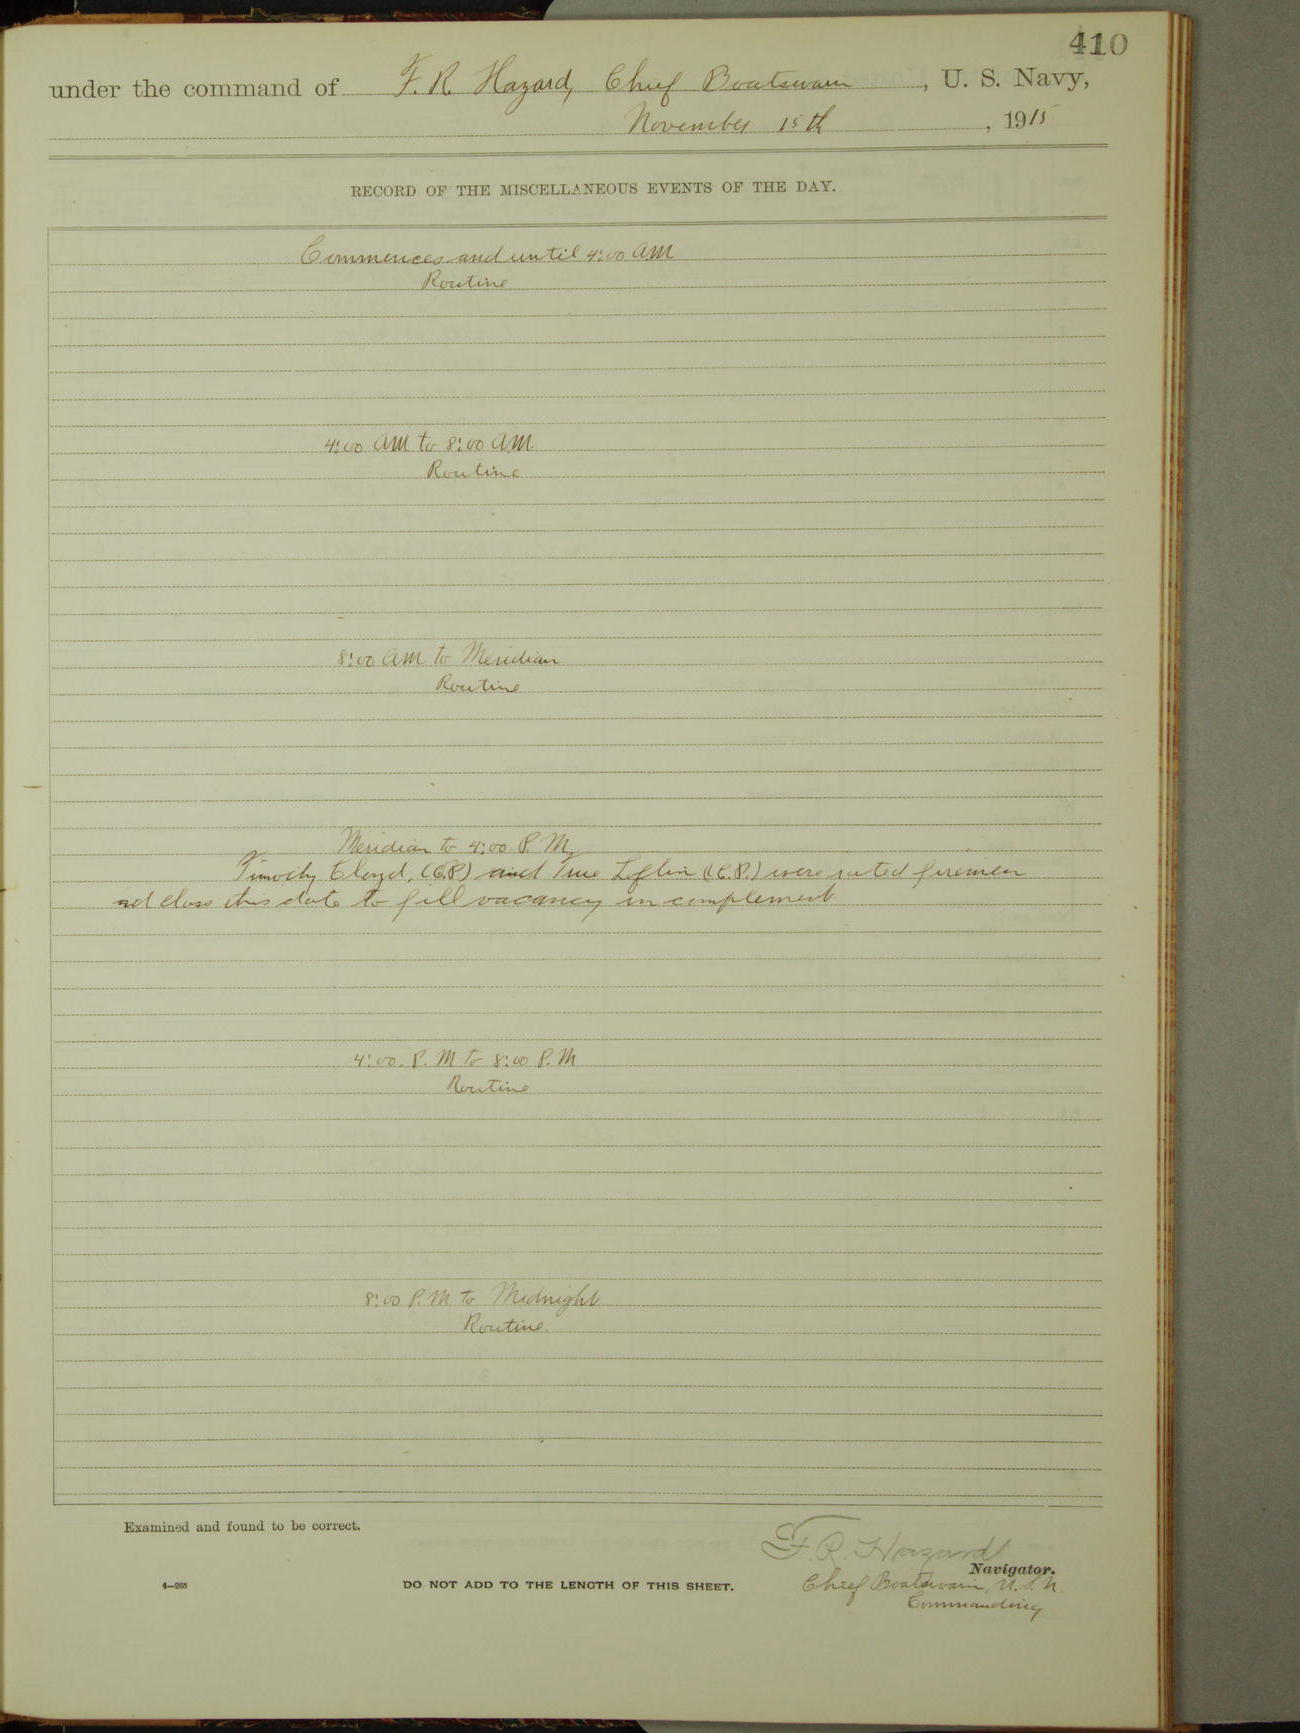 410
under the command of F. R. Hazard, Chief Boatswain, U. S. Navy,
November 15th, 1915
RECORD OF THE MISCELLANEOUS EVENTS OF THE DAY.
Commences and until 4:00 AM
Routine
4:00 AM to 8:00 A.M.
Routine
8:00 AM to Meridian
Routine
Meridian to 4:00 P. M.
Timothy (C.P.) and True Loflin (C.P.) were rated firemen
2d class this date to fill vacancy in complement
4:00. P. M to 8:00 P. M
Routine
8:00 P. M to Midnight
Routine.
Examined and found to be correct.
F. R. Hazard
Navigator.
4—265
DO NOT ADD TO THE LENGTH OF THIS SHEET.
Chief Boatswain, U. S. N.
Commanding